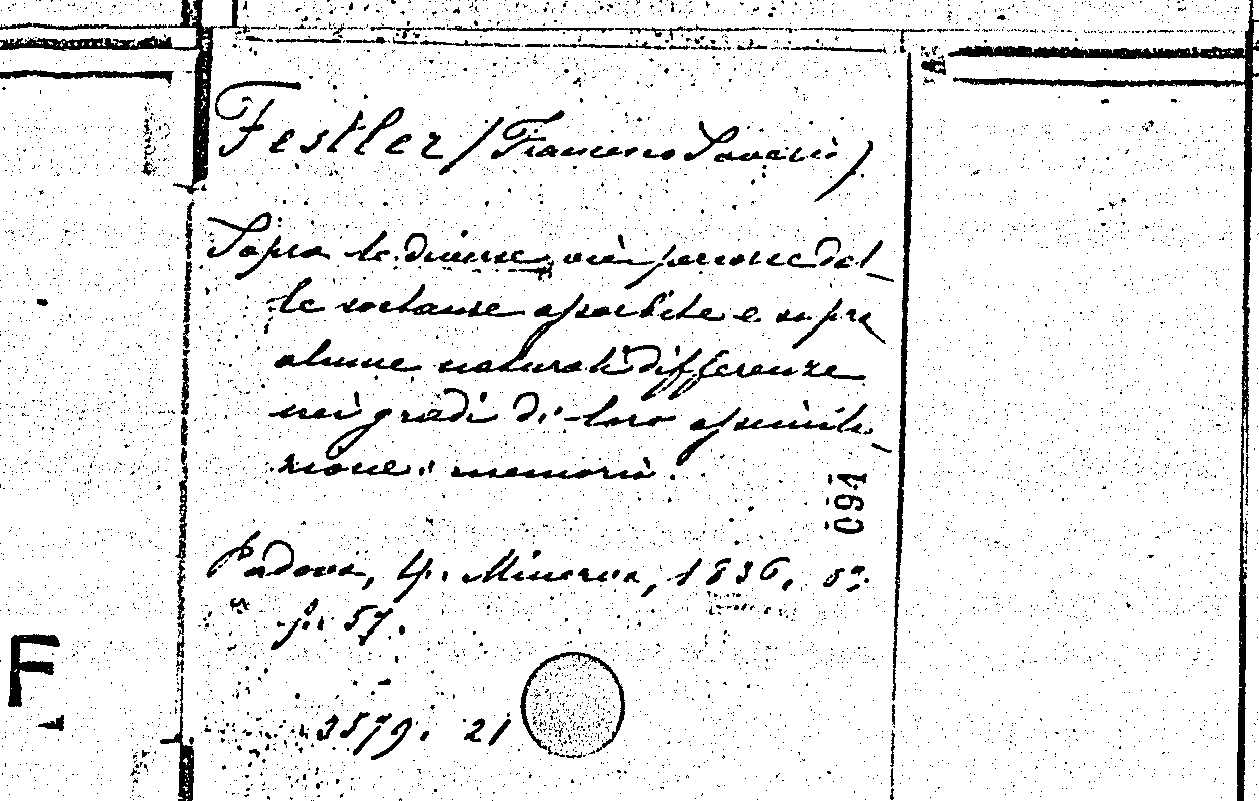 Festler (Francesco Saverio)
Sopra le diverse vie percorse dal_
le sostanze assorbite e sopra
alcune naturali differenze
nei gradi di loro assimila_
zione: memoria.
091
Padova, tip. Minerva, 1836. 8º.
p. 57.
F
3579. 21